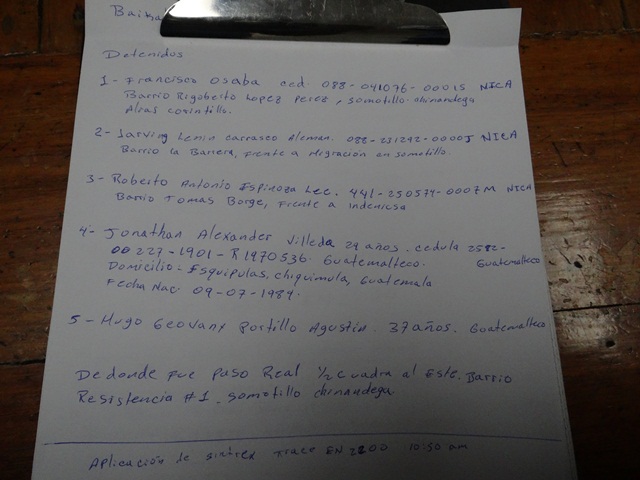 Detenidos
1- Francisco Osaba ced. 088-041076-00015 NICA
Barrio Rigoberto Lopez Perez, somotillo-chinandega
Alias
2- Jarving Lenin carrasco Aleman. 088-231292-0000J NICA
Barrio la Barrera, Frente a Migración en somotillo.
3- Roberto Antonio Espinoza Lec. 441-250574-0007M NICA
Barrio Tomas Borge, Frente a
4- Jonathan Alexander Villeda 29 años. cedula 2582-
00227-1901-R1970536. Guatemalteco. Guatemalteco
Domicilio: Esquipulas, chiquimula, Guatemala
Fecha Nac: 09-07-1984.
5- Hugo Geovany Portillo Agustin. 37 años. Guatemalteco
De donde fue Paso Real 1/2 cuadra al Este. Barrio
Resistencia #1. somotillo chinandega
Aplicación de Trace EN 10:50 am